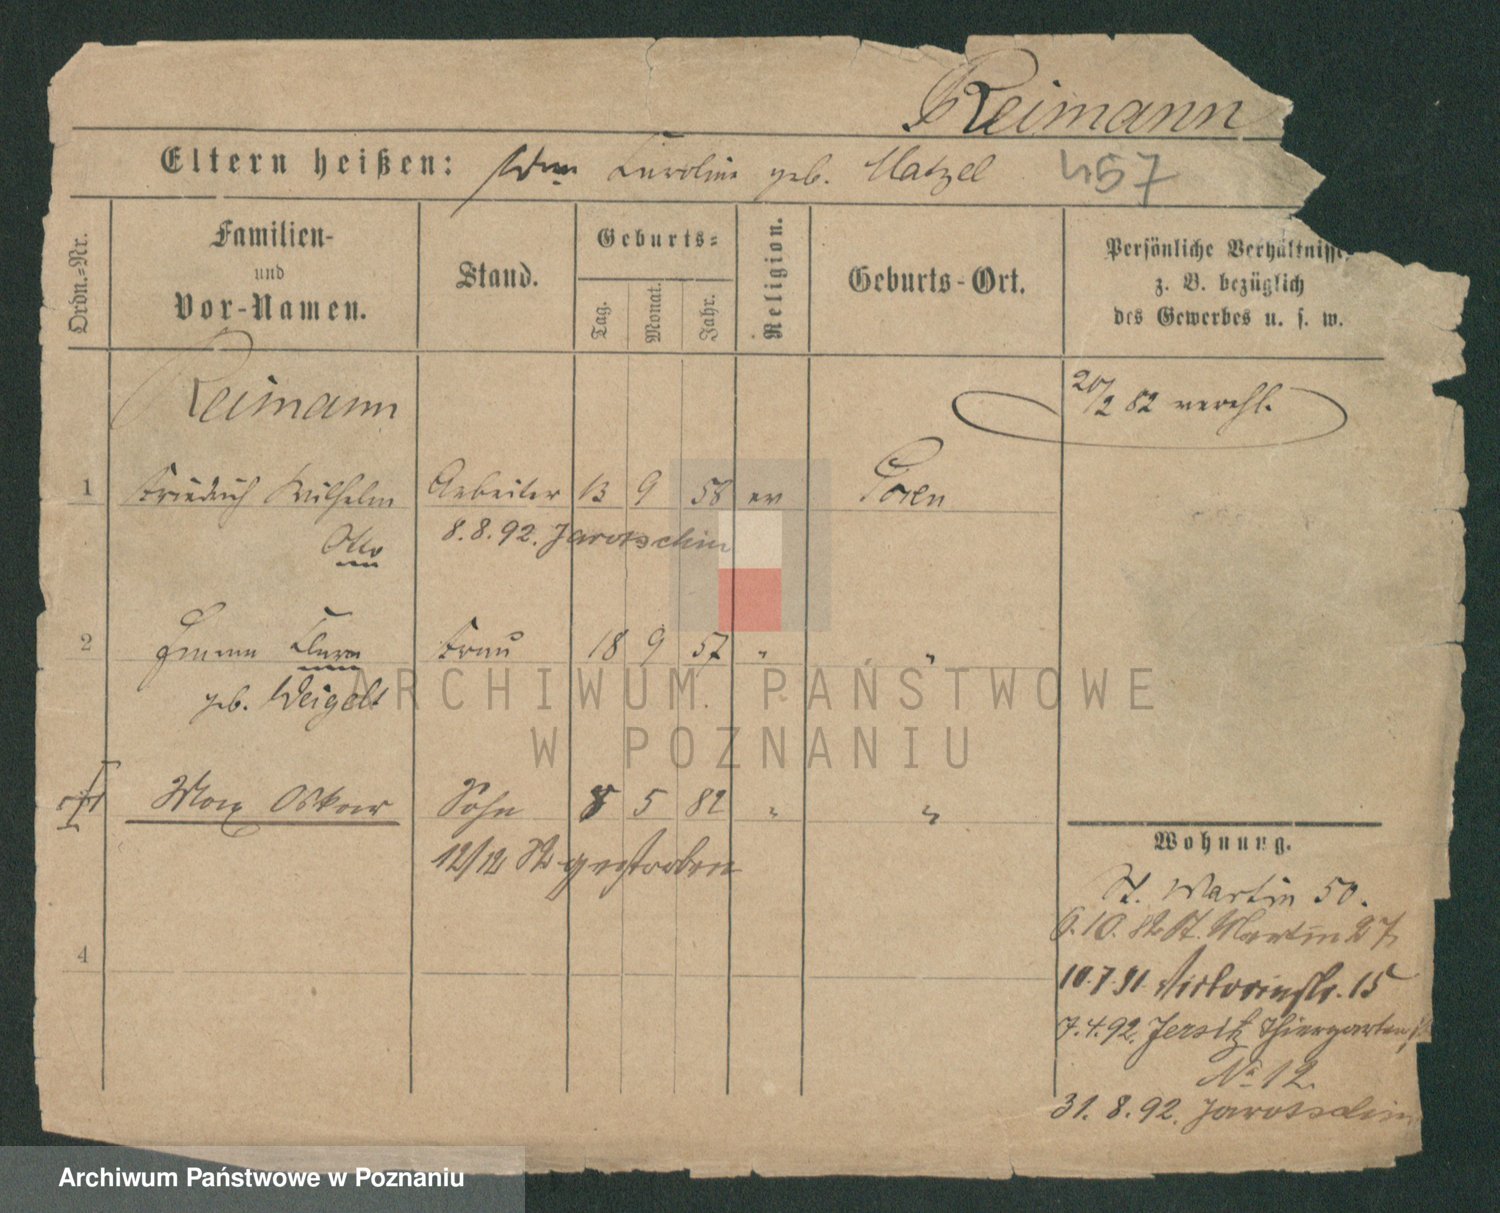 Reimann
Eltern heißen: Caroline geb. Matzel 457
Ordn.-Nr. Familien- und Vor-Namen. Stand. Geburts- Tag. Monat. Jahr. Religion. Geburts-Ort. Persönliche Verhältnisse z. B. bezüglich des Gewerbes u. s. w.
Reimann 20/2 82 verehl.
1 Friedrich Wilhelm Arbeiter 13 9 58 ev Posen
Otto 8.8.92. Jarotschin
2 Emma Clara Frau 18 9 57 " "
geb. Weigelt
Max Oskar Sohn 8 5 82 " "
12/12 gestorben
4
Wohnung.
St. Martin 50.
6.10.82 St. Martin 27
10.7.91 Victoriastr. 15
7.4.92. Jersitz Thiergartenstr
No 12.
31.8.92. Jarotschin
ARCHIWUM PAŃSTWOWE
W POZNANIU
Archiwum Państwowe w Poznaniu